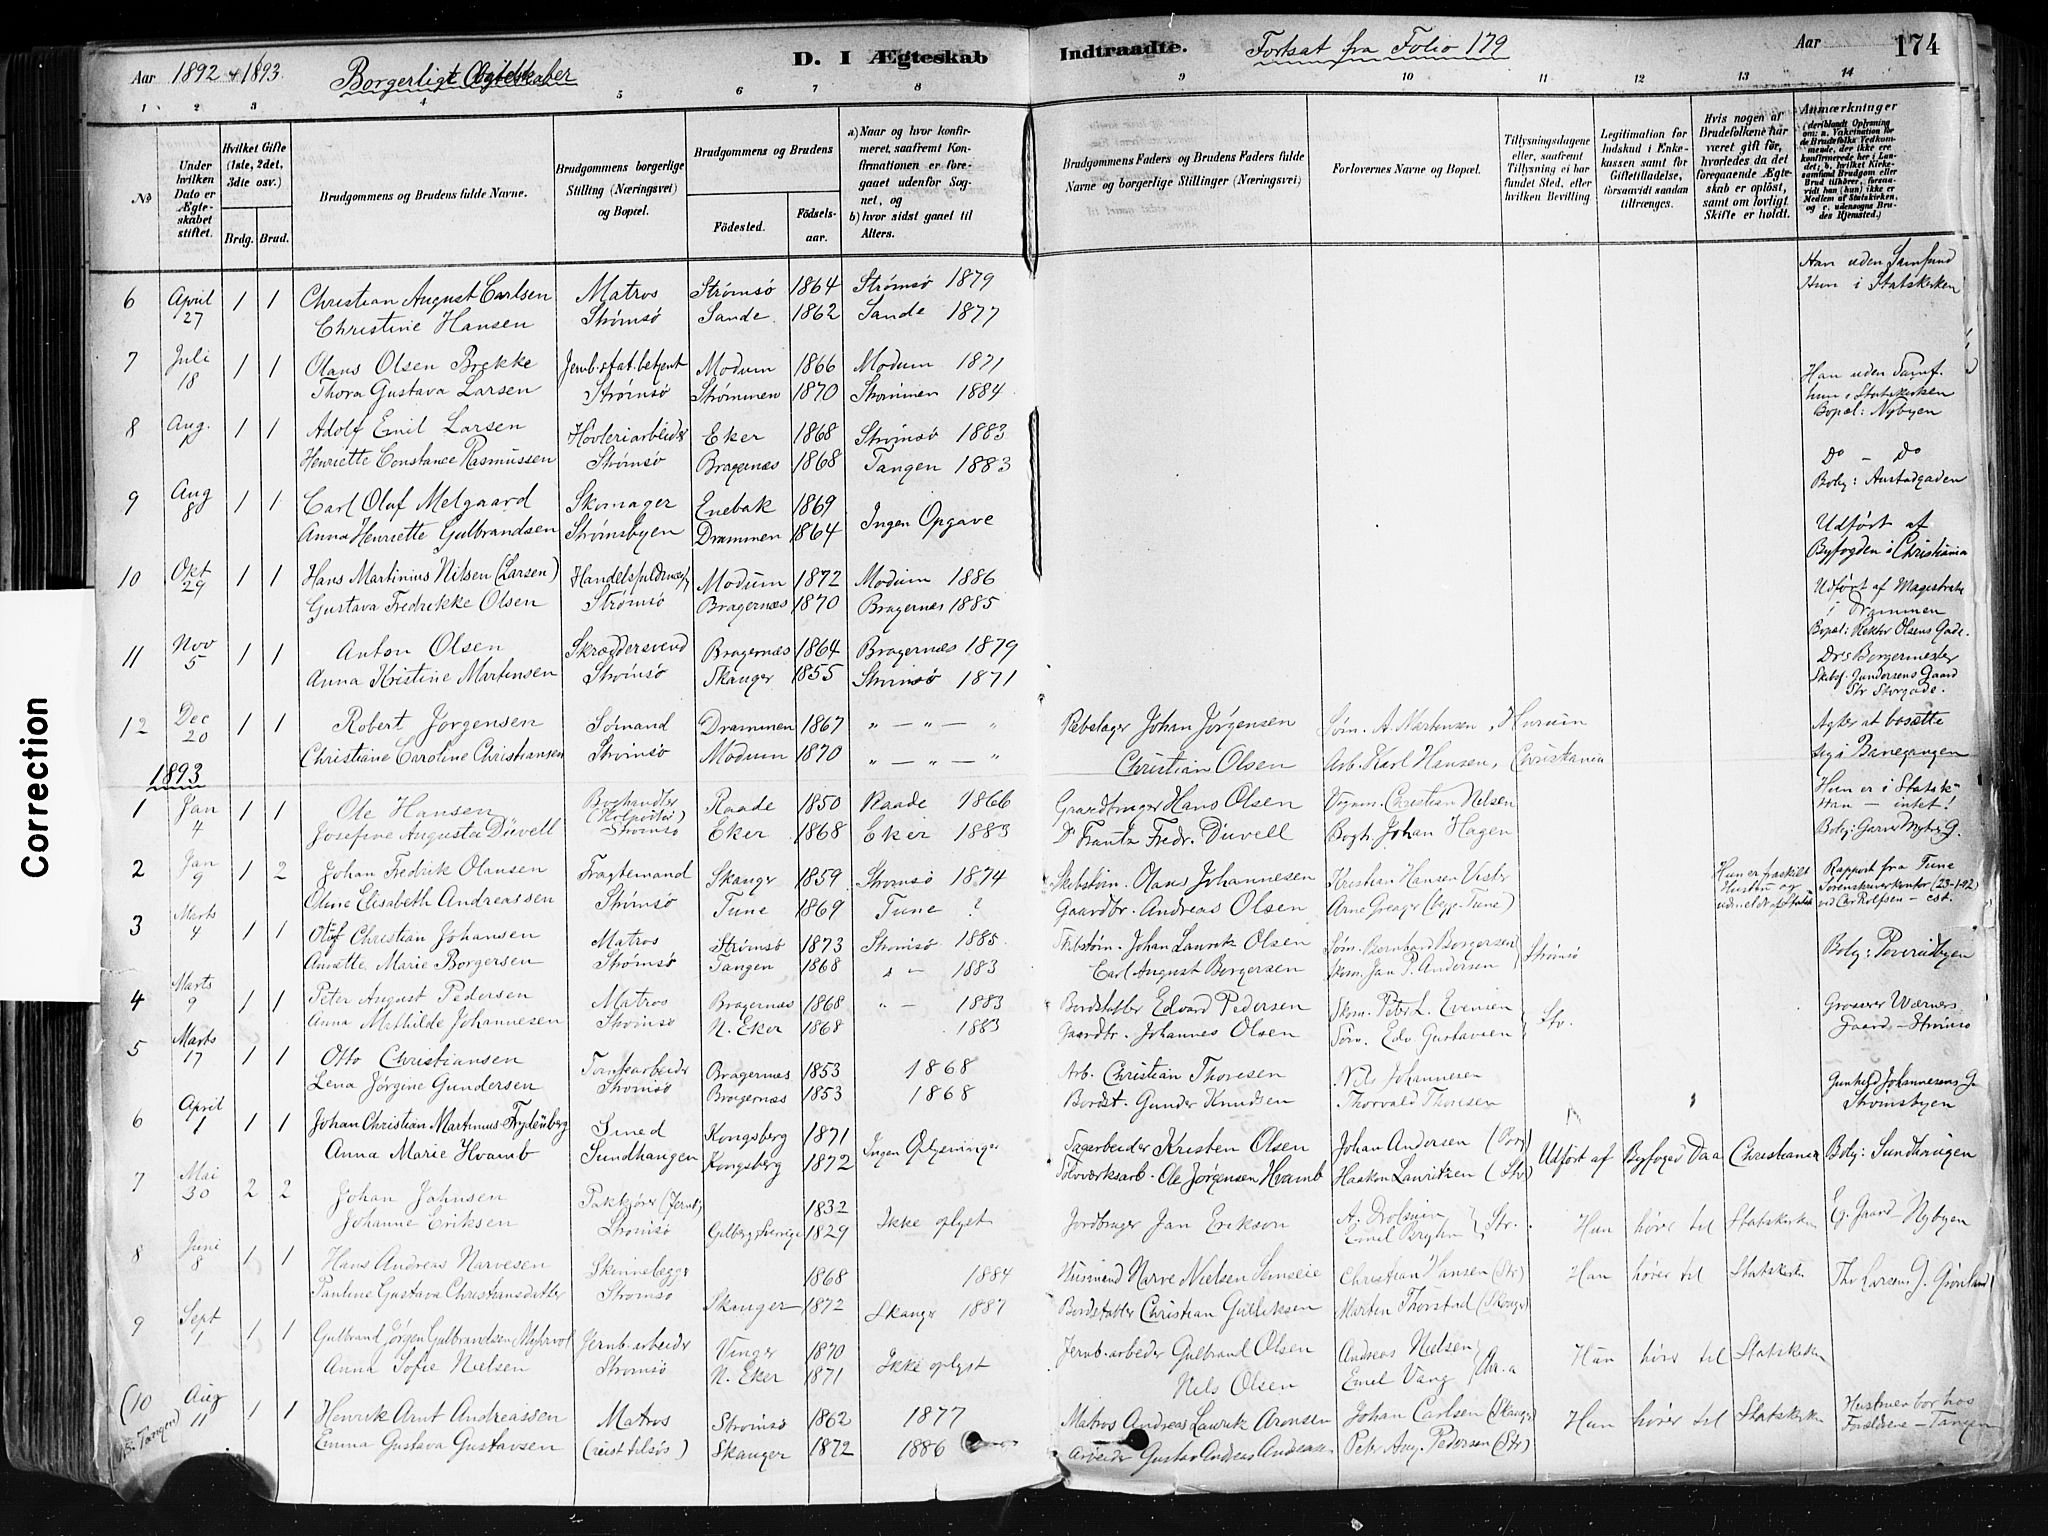 Aar 1892 & 1893.
Borgerlige Ægteskaber
D. I Ægteskab
Indtraadte.
Fortsat fra Folio 179
Aar
174
1 2 3 4 5 6 7 8 9 10 11 12 13 14
No
Under hvilken Dato er Ægteskabet stiftet.
Hvilket Gifte (1ste, 2det, 3die osv.)
Brdg. Brud.
Brudgommens og Brudens fulde Navne.
Brudgommens borgerlige Stilling (Næringsvei) og Bopæl.
Brudgommens og Brudens
Fødested.
Fødselsaar.
a) Naar og hvor konfirmeret, saafremt Konfirmationen er foregaaet udenfor Sognet, og
b) hvor sidst gaaet til Alters.
Brudgommens Faders og Brudens Faders fulde Navne og borgerlige Stillinger (Næringsvei)
Forlovernes Navne og Bopæl.
Tillysningsdagene eller, saafremt Tillysning ei har fundet Sted, efter hvilken Bevilling
Legitimation for Indskud i Enkekassen samt for Giftetilladelse, forsaavidt saadan tiltrænges.
Hvis nogen af Brudefolkene har været gift før, hvorledes da det foregaaende Ægteskab er opløst, samt om lovligt Skifte er holdt.
Anmærkninger
6 April 27 1 1 Christian August Carlsen Matros Strømsø 1864 Strømsø 1879 Han uden Samfund
Christine Hansen Strømsø Sande 1862 Sande 1877 Hun i Statskirken
7 Juli 18 1 1 Olaus Olsen Brekke Jernb.stat.betjent Modum 1866 Modum 1871 Han uden Samf.
Thora Gustava Larsen Strømsø Strømmen 1870 Strømmen 1884 hun i Statskirken
Bopæl: Nybyen
8 Aug. 1 1 Adolf Emil Larsen Høvleriarbeider Eker 1868 Strømsø 1883
Henriette Constance Rasmussen Strømsø Bragernæs 1868 Tangen 1883 Do - Do
Bolig: Austadgaden
9 Aug 8 1 1 Carl Oluf Melgaard Skomager Enebak 1869 Ingen Opgave
Anna Henriette Gulbrandsen Strømsbyen Drammen 1864 Udført af
Byfogden i Christiania
10 Okt 29 1 1 Hans Martinius Nilsen (Larsen) Modum 1872 Modum 1886 Udført af Magistrate
Gustava Fredrikke Olsen Strømsø Bragernæs 1870 Bragernæs 1885 i Drammen
Bopæl: Rektor Olsens Gade.
11 Nov 5 1 1 Anton Olsen Skræddersvend Bragernæs 1864 Bragernæs 1879 Drs Borgermester
Anna Kristine Martinsen Strømsø Skauger 1855 Strømsø 1871 Skibsf. Gundersens Gaard
Str Storgade.
12 Dec 20 1 1 Robert Jørgensen Sømand Drammen 1867 " — " — " Rebslager Johan Jørgensen Søm. A. Martensen, Hurum Agter at bosætte
Christiane Caroline Christiansen Strømsø Modum 1870 " — " — " Christian Olsen Arb. Karl Hansen, Christiania sig i Banegangen
1893
1 Jan 4 1 1 Ole Hansen Boghandler (Kolportør) Raade 1850 Raade 1866 Gaardbruger Hans Olsen Vognm. Christian Nelsen Hun er i Statsk
Josefine Augusta Düvell Strømsø Eker 1868 Eker 1883 Do Frantz Fredr. Düvell Bogh. Johan Hagen Han — intet!
2 Jan 9 1 2 Johan Fredrik Olausen Fragtemand Skauger 1859 Strømsø 1874 Skibstøm. Olaus Johannesen Kristian Hansen Hun er fraskilt Hustru og Rapport fra Tune
Oline Elisabeth Andreassen Strømsø Tune 1869 Tune ? Gaardbr. Andreas Olsen Arne Greager Sorenskriverkontor (23-1-92)
3 Marts 4 1 1 Oluf Christian Johansen Matros Strømsø 1873 Strømsø 1885 Skibstøm. Johan Laurik Olsen Søm. Bernhard Borgersen Strømsø
Annette Marie Borgersen Strømsø Tangen 1868 " - 1883 Carl August Borgersen Skom. Jan P. Andersen
4 Marts 9 1 1 Peter August Pedersen Matros Bragernæs 1868 " — 1883 Bordstabler Edvard Pedersen Skom. Peter L. Evensen Str. Grosserer Wærners
Anna Mathilde Johannesen Strømsø N. Eker 1868 1883 Gaardbr. Johannes Olsen Søm. Edv. Gustavsen Gaard, - Strømsø
5 Marts 17 1 1 Otto Christiansen Bragernæs 1853 1868 Arb. Christian Thoresen Nils Johannesen Gunhild Johannesens G.
Lena Jørgine Gundersen Strømsø Bragernæs 1853 1868 Bordst. Gunder Knudsen Thorvald Thoresen Strømsbyen
6 April 1 1 1 Johan Christian Martinius Frydenberg Smed Kongsberg 1871 Ingen Oplysninger Sagarbeider Kristen Olsen Johan Andersen Udført af Byfoged Daa Christiania Bolig: Sundhaugen
Anna Marie Hvamb Sundhaugen Kongsberg 1872 Sølvværksarb. Ole Jørgensen Hvamb Haakon Lauritzen (Str)
7 Mai 30 2 2 Johan Jahnsen 1832 Ikke oplyst Jordbruger Jan Erikson
Johanne Eriksen Strømsø Gilberg Sverige 1829 Str. Hun hører til Statskirken G. Gaard - Nybyen
8 Juni 8 1 1 Hans Andreas Narvesen Skinnelægger 1868 1884 Husmand Narve Nielsen Christian Hansen (Str) Han hører til Statskirk Th. Larsens G. Grønland
Pauline Gustava Christiansdatter Strømsø Skauger 1872 Skauger 1887 Bordstabler Christian Gulliksen Martin Thorstad (Skauger)
9 Sept 1 1 1 Gulbrand Jørgen Gulbrandsen Myhrvol Jernb. arbeider Vinger 1870 Ikke oplyst Jernb. arbeider Gulbrand Olsen Andreas Nielsen Hun hører til Statskirken
Anna Sofie Nielsen Strømsø N. Eker 1871 Nils Olsen Emil Vang
(10 Aug 11 1 1 Henrik Arnt Andreassen Matros Strømsø 1862 1877 Matros Andreas Laurik Aronsen Johan Carlsen (Skauger) Hun hører til Statskirken Hustruen bor hos
Emma Gustava Gustavsen Skauger 1872 1886 Arbeider Gustav Andreas Andreasen Petr Aug. Pedersen (Str) Forældrene - Tangen
Correction